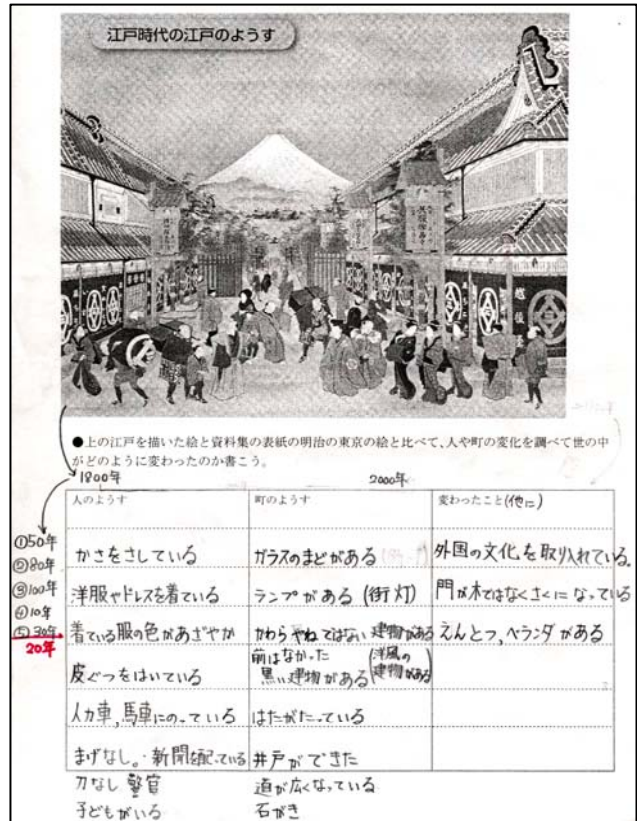 江戸時代の江戸のようす
●上の江戸を描いた絵と資料集の表紙の明治の東京の絵と比べて、人や町の変化を調べて世の中
がどのように変わったのか書こう。
1800年
2000年
人のようす
町のようす
変わったこと(他に)
①50年
②80年
③100年
④10年
⑤30年
20年
かさをさしている
ガラスのまどがある
外国の文化を取り入れている。
洋服やドレスを着ている
ランプがある(街灯)
門が木ではなくさくになっている
着ている服の色があざやか
かわらやねではない建物がある
えんとつ,ベランダがある
皮ぐつをはいている
前はなかった
黒い建物がある(洋風の建物がある)
人力車,馬車にのっている
はたがたっている
まげなし。・新聞を配っている
井戸ができた
刀なし 警官
道が広くなっている
子どもがいる
石がき